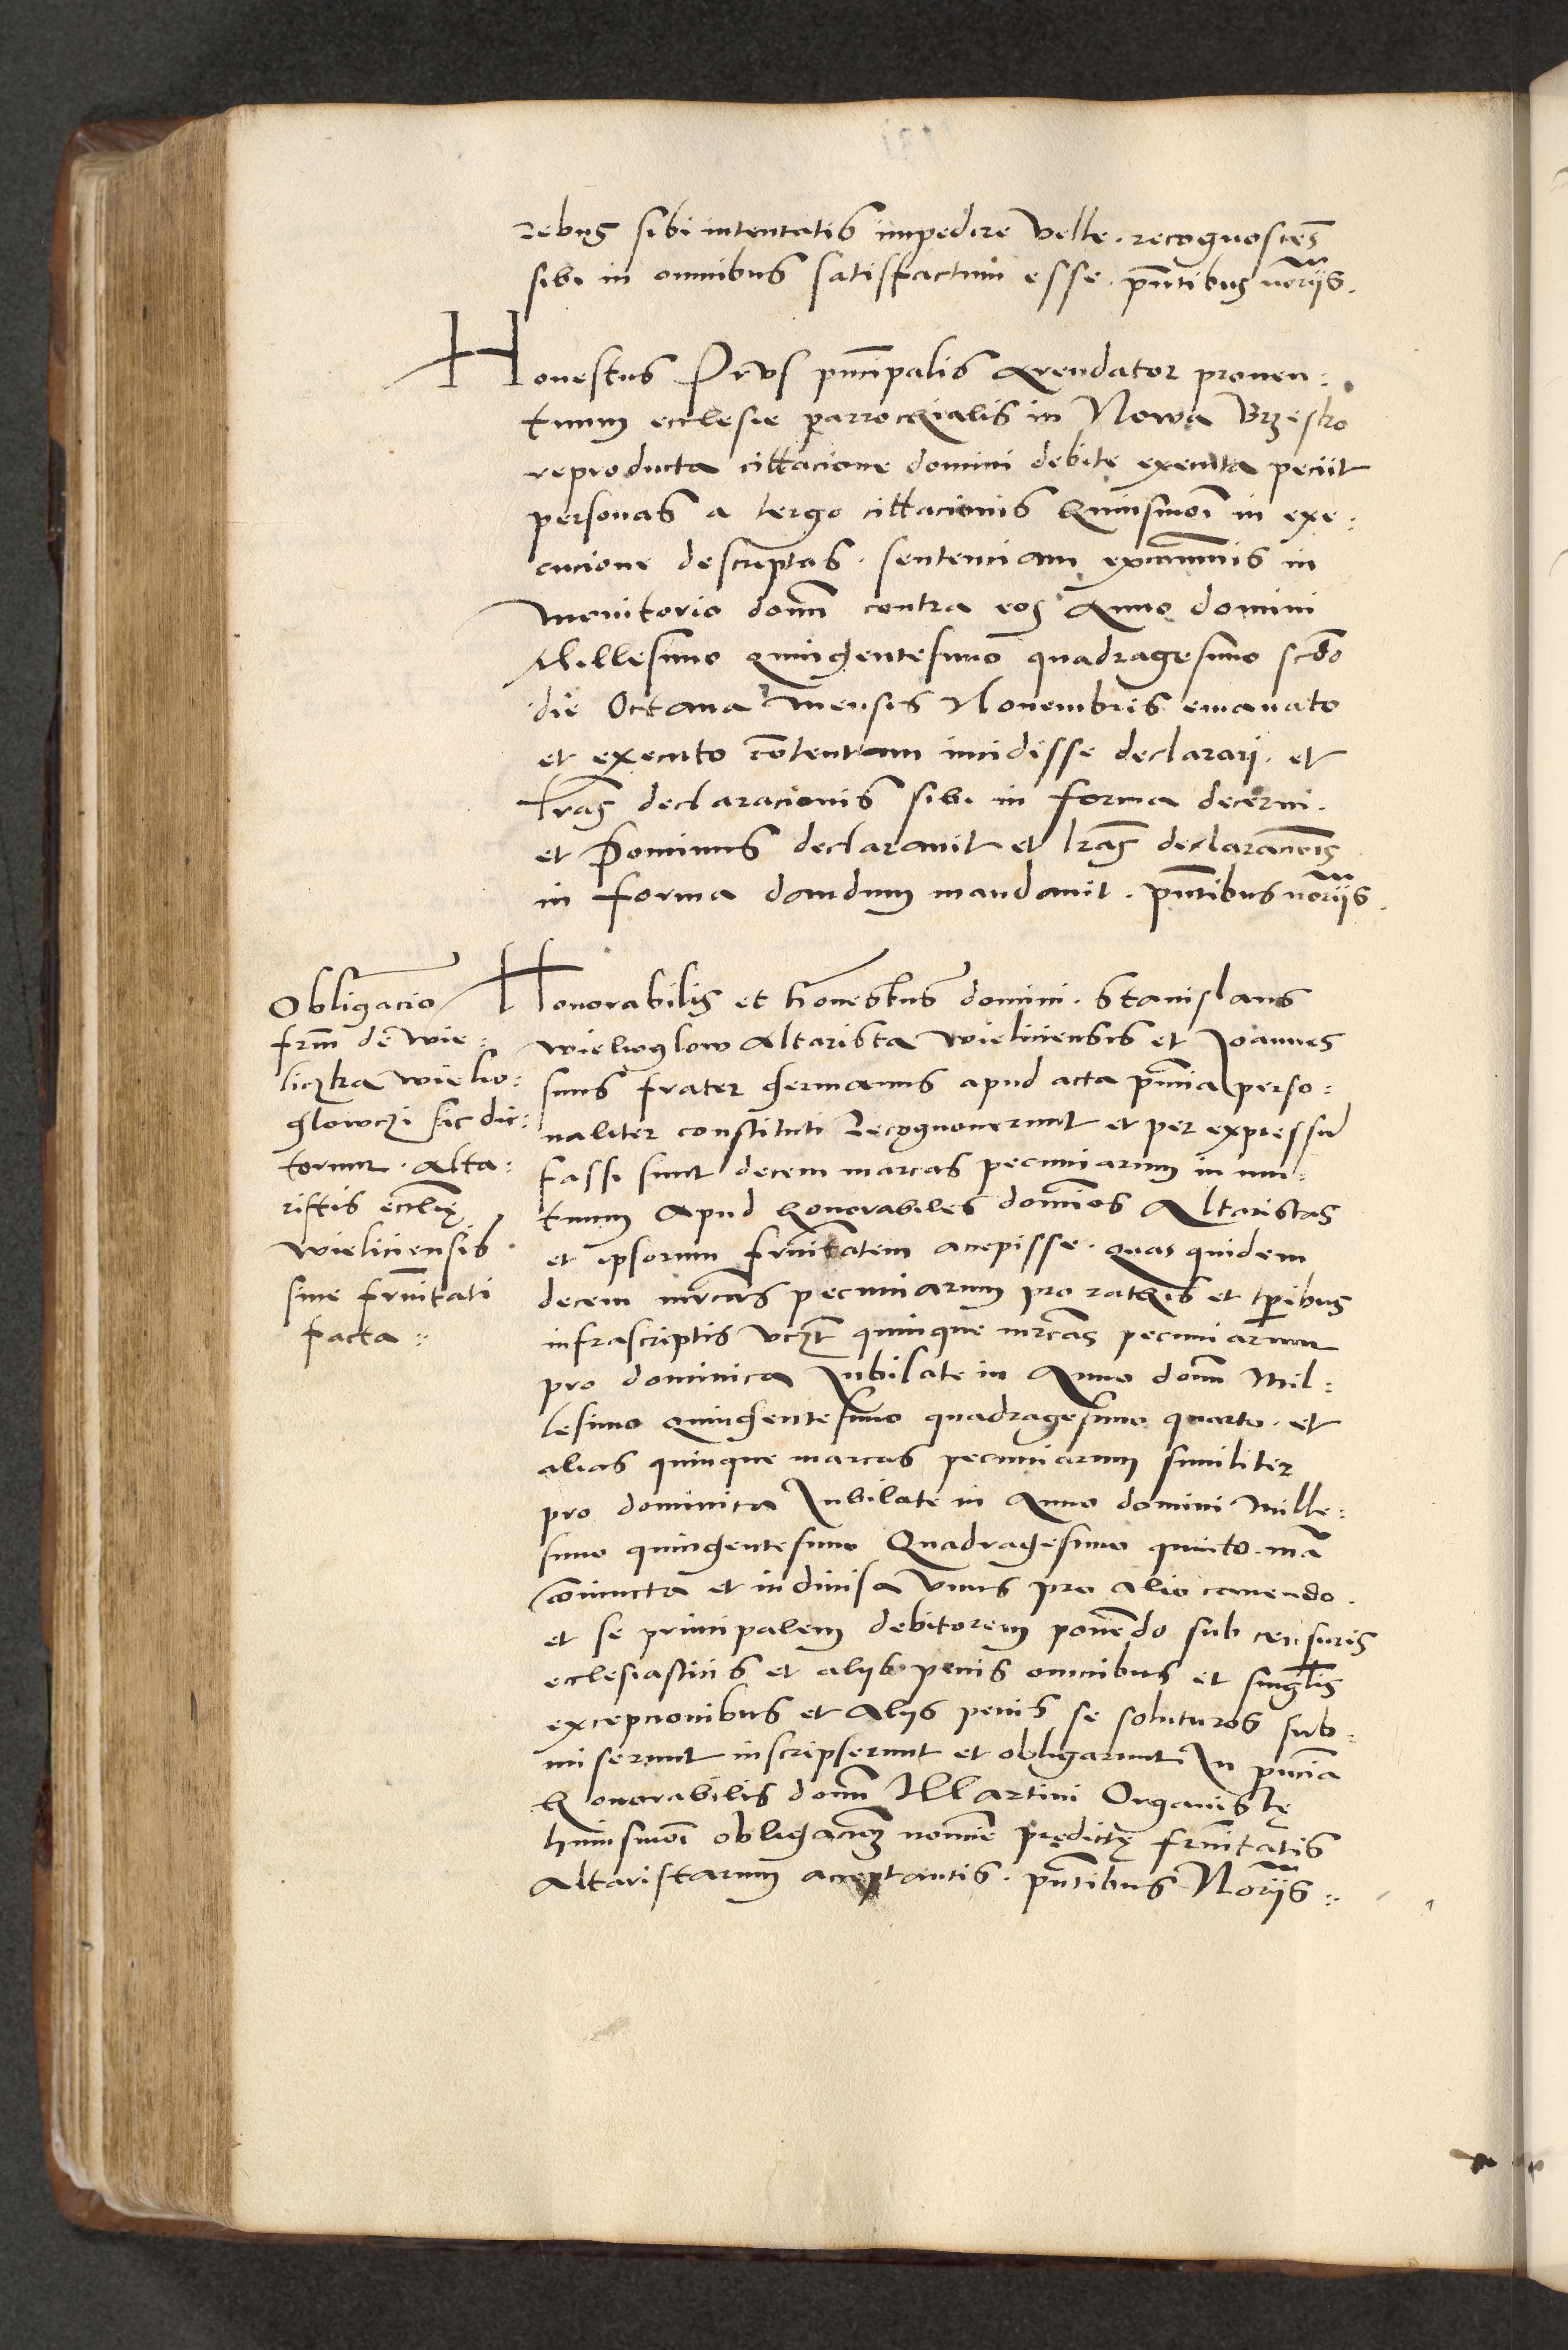 rebus sibi intentatis impedire velle. recognoscens̄
sibi in omnibus satisfactum esse. pñtibus norijs.
Honestus Prus principalis Arendator proven:
tuum ecclesie parrochialis in Nowa Brzesko
reproducta cittacione domini debite executa peciit
personas a tergo cittacionis huiusmoi in exe:
cucione descriptas. sentenciam excōmnis in
monitorio domī contra eos Anno domini
Millesimo quingentesimo quadragesimo scdo
die Octava mensis Novembris emanato
et executo contentam incidisse declarari. et
lras declaracionis sibi in forma decerni.
et Dominus declaravit et lras declaracionis
in forma dandum mandavit. pñtibus norijs.
Obligacio
frm de Wie:
liczka wielio:
glowczi sic dic:
torum. Alta:
ristis ecclię
Wieliciensis
sive frnitati
facta
Honorabilis et honestus domini. Stanislaus
Wielioglow Altarista Wieliciensis et Joannes
suus frater germanus apud acta pñcia perso:
naliter constituti Recognoverunt et per expressū
fassi sunt decem marcas pecuniarum in mu:
tuum Apud honorabiles dominos Altaristas
et ipsorum frnitatem accepisse. quas quidem
decem mrcas pecuniarum pro rathis et tpibus
infrascriptis vczt quinque mrcas pecuniarum
pro dominica Jubilate in Anno domī Mil:
lesimo quingentesimo quadragesimo quarto. et
alias quinque marcas pecuniarum similiter
pro dominica Jubilate in Anno domini Mille:
simo quingentesimo Quadragesimo quinto. mā
coniuncta et indivisa unus pro alio cavendo.
et se principalem debitorem ponendo sub censuris
ecclesiasticis et alijs penis omnibus et singlis
excepcionibus et Alijs penis se soluturos sub:
miserunt inscripserunt et obligarunt In pñcia
honorabilis domī Martini Organistę
huiusmoi obligacionem nomine prędictę frnitatis
Altaristarum acceptantis. pñtibus Norijs